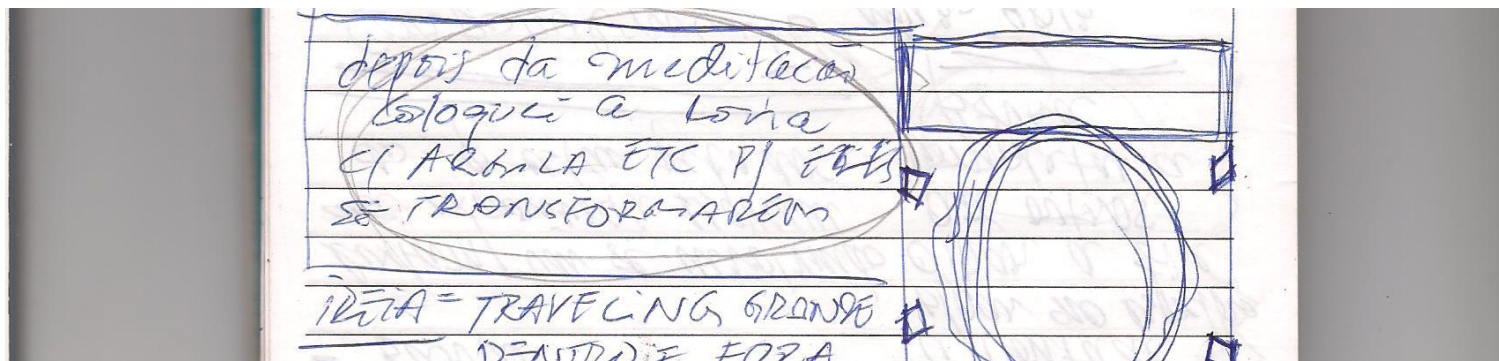 depois da meditação
coloquei a lona
C/ ARGILA ETC P/ ELES
SE TRANSFORMAREM
IDEIA = TRAVELING GRANDE
DENTRO E FORA